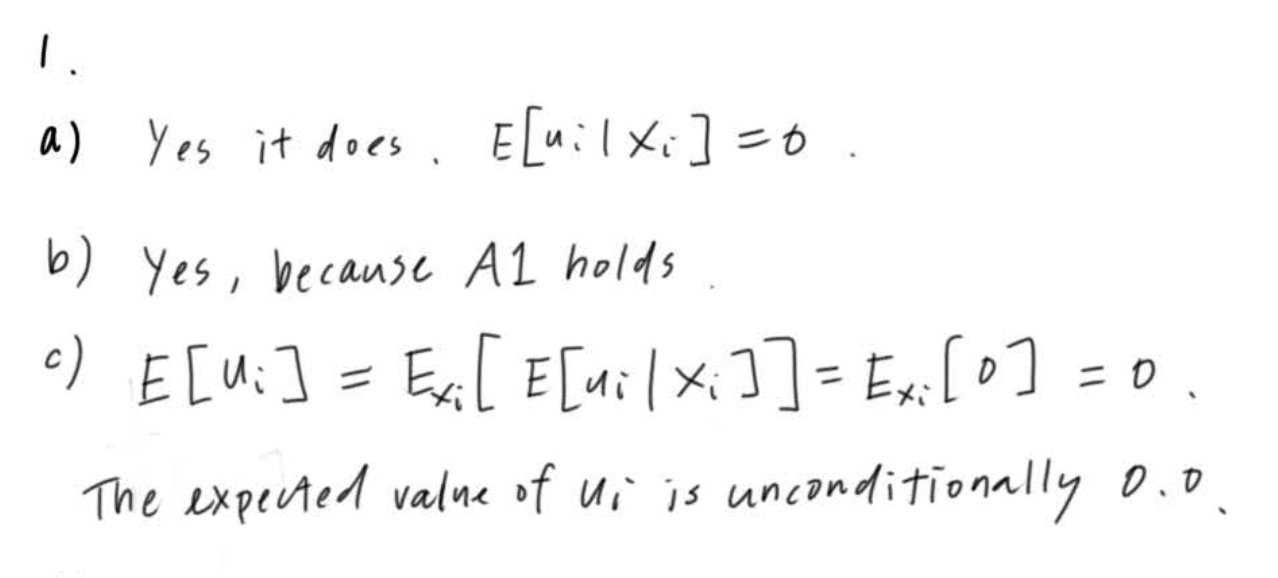 1.
a) Yes it does. E[uᵢ|Xᵢ] = 0.
b) Yes, because A1 holds.
c) E[uᵢ] = E_{xᵢ}[E[uᵢ|xᵢ]] = E_{xᵢ}[0] = 0.
The expected value of uᵢ is unconditionally 0.0.